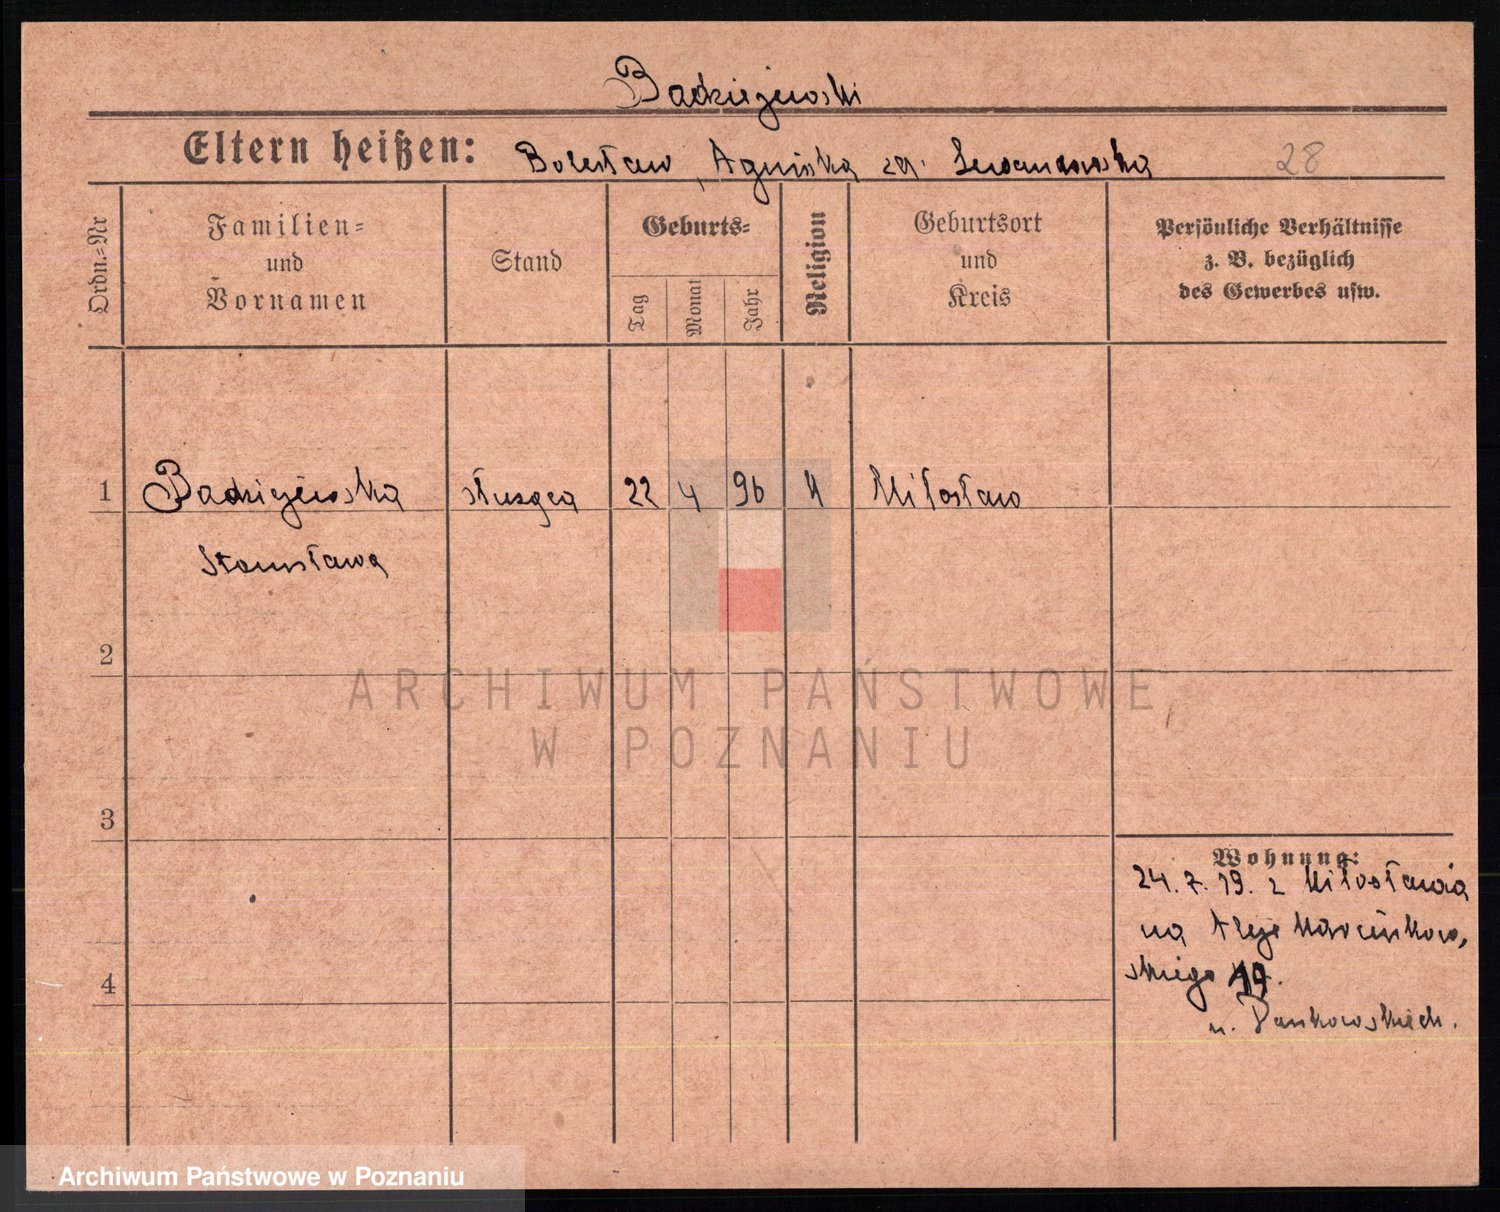 Badziejewski
Eltern heißen: Bolesław, Agnieszka Lewandowska 28
Ordn.=Nr
Familien=
und
Vornamen
Stand
Geburts=
Tag
Monat
Jahr
Religion
Geburtsort
und
Kreis
Persönliche Verhältnisse
z. B. bezüglich
des Gewerbes usw.
1 Badziejewska służąca 22 4 96 Miłosław
Stanisława
2
ARCHIWUM PAŃSTWOWE
W POZNANIU
3
Wohnung:
24. 7. 19. z Miłosławia
na Aleje Marcinkow,
skiego
4
u. Dankowskich.
Archiwum Państwowe w Poznaniu